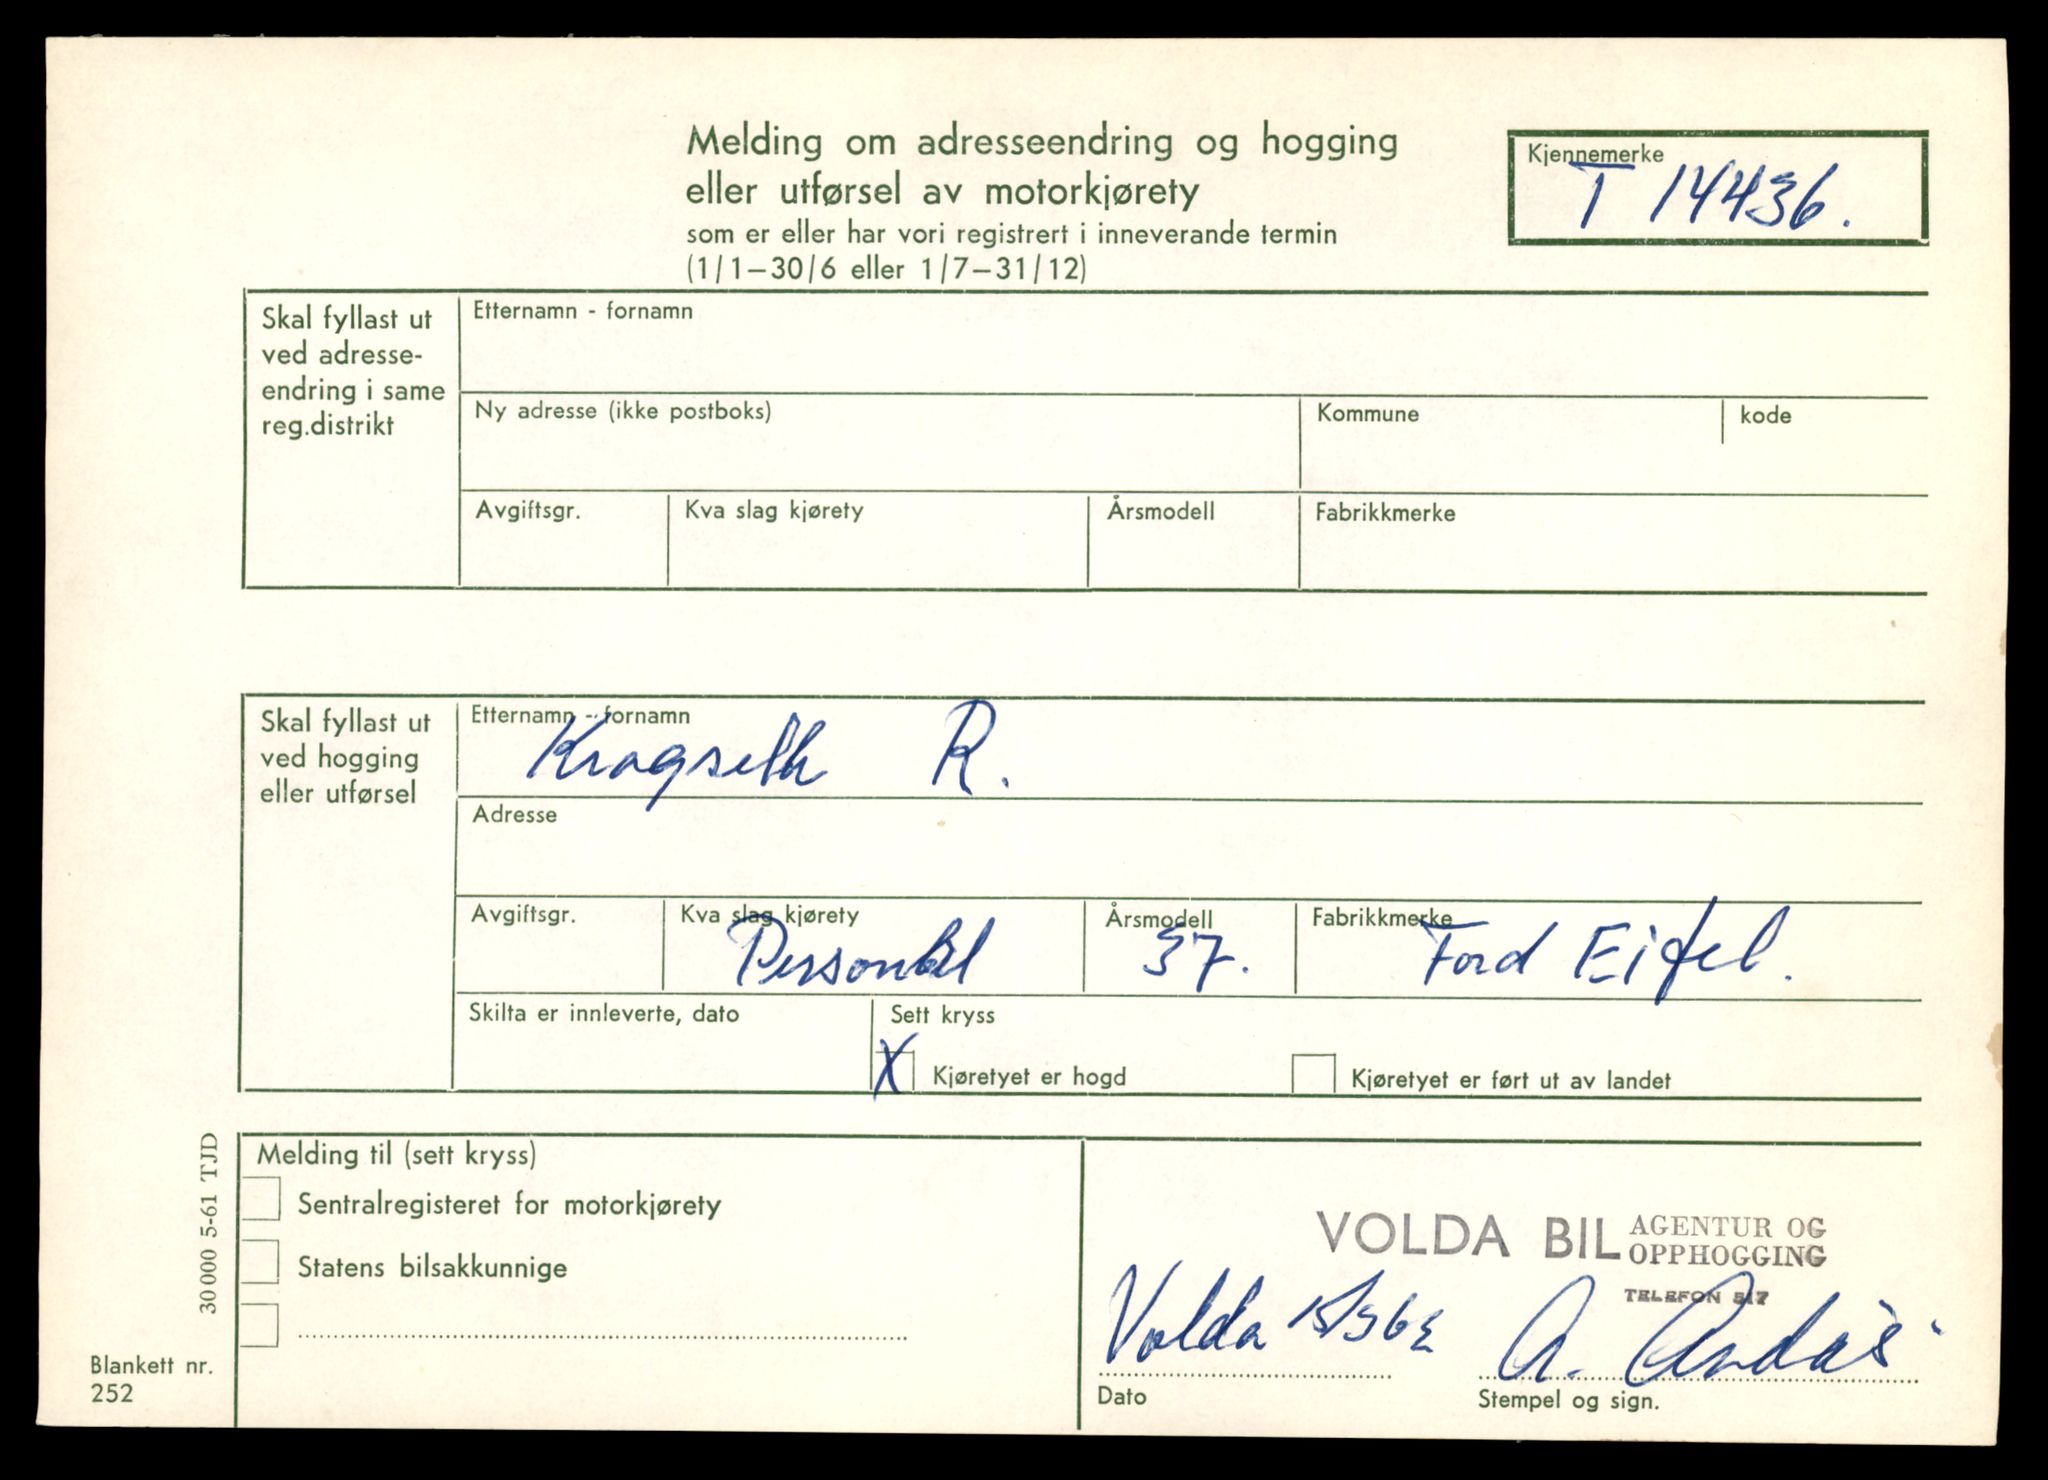 Melding om adresseendring og hogging
eller utførsel av motorkjørety
som er eller har vori registrert i inneverande termin
(1/1–30/6 eller 1/7–31/12)
Kjennemerke
T 14436.
Skal fyllast ut
ved adresse-
endring i same
reg.distrikt
Etternamn - fornamn
Ny adresse (ikke postboks)
Kommune
kode
Avgiftsgr.
Kva slag kjørety
Årsmodell
Fabrikkmerke
Skal fyllast ut
ved hogging
eller utførsel
Etternamn - fornamn
Kragseth R.
Adresse
Avgiftsgr.
Kva slag kjørety
Personbil
Årsmodell
37.
Fabrikkmerke
Ford Eifel.
Skilta er innleverte, dato
Sett kryss
X Kjøretyet er hogd
Kjøretyet er ført ut av landet
30000 5-61 TJD
Melding til (sett kryss)
Sentralregisteret for motorkjørety
Statens bilsakkunnige
Blankett nr.
252
VOLDA BIL AGENTUR OG
OPPHOGGING
TELEFON 517
Volda
Dato
A.
Stempel og sign.